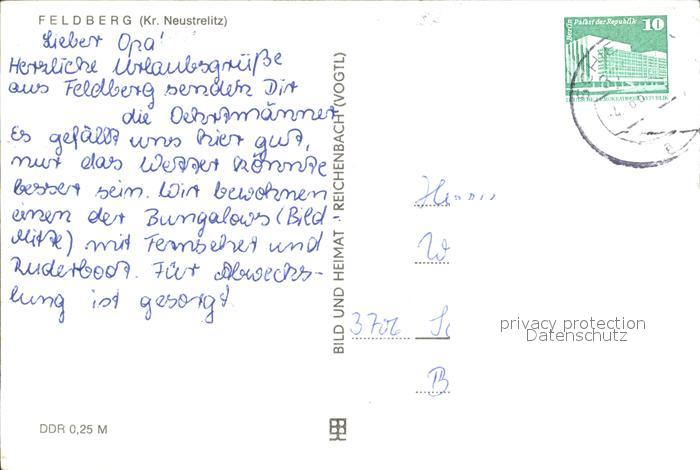 FELDBERG (Kr. Neustrelitz)
Lieber Opa!
Herzliche Urlaubsgrüße
aus Feldberg senden Dir
die
Es gefällt uns hier gut,
nur das Wetter könnte
besser sein. Wir bewohnen
einen der Bungalows (Bild
Mitte) mit Fernseher und
Ruderboot. Für Abwechs-
lung ist gesorgt.
DDR 0,25 M
BILD UND HEIMAT · REICHENBACH (VOGTL)
Berlin Palast der Republik
10
DEUTSCHE DEMOKRATISCHE REPUBLIK
W
3706 Sc
B
privacy protection
Datenschutz